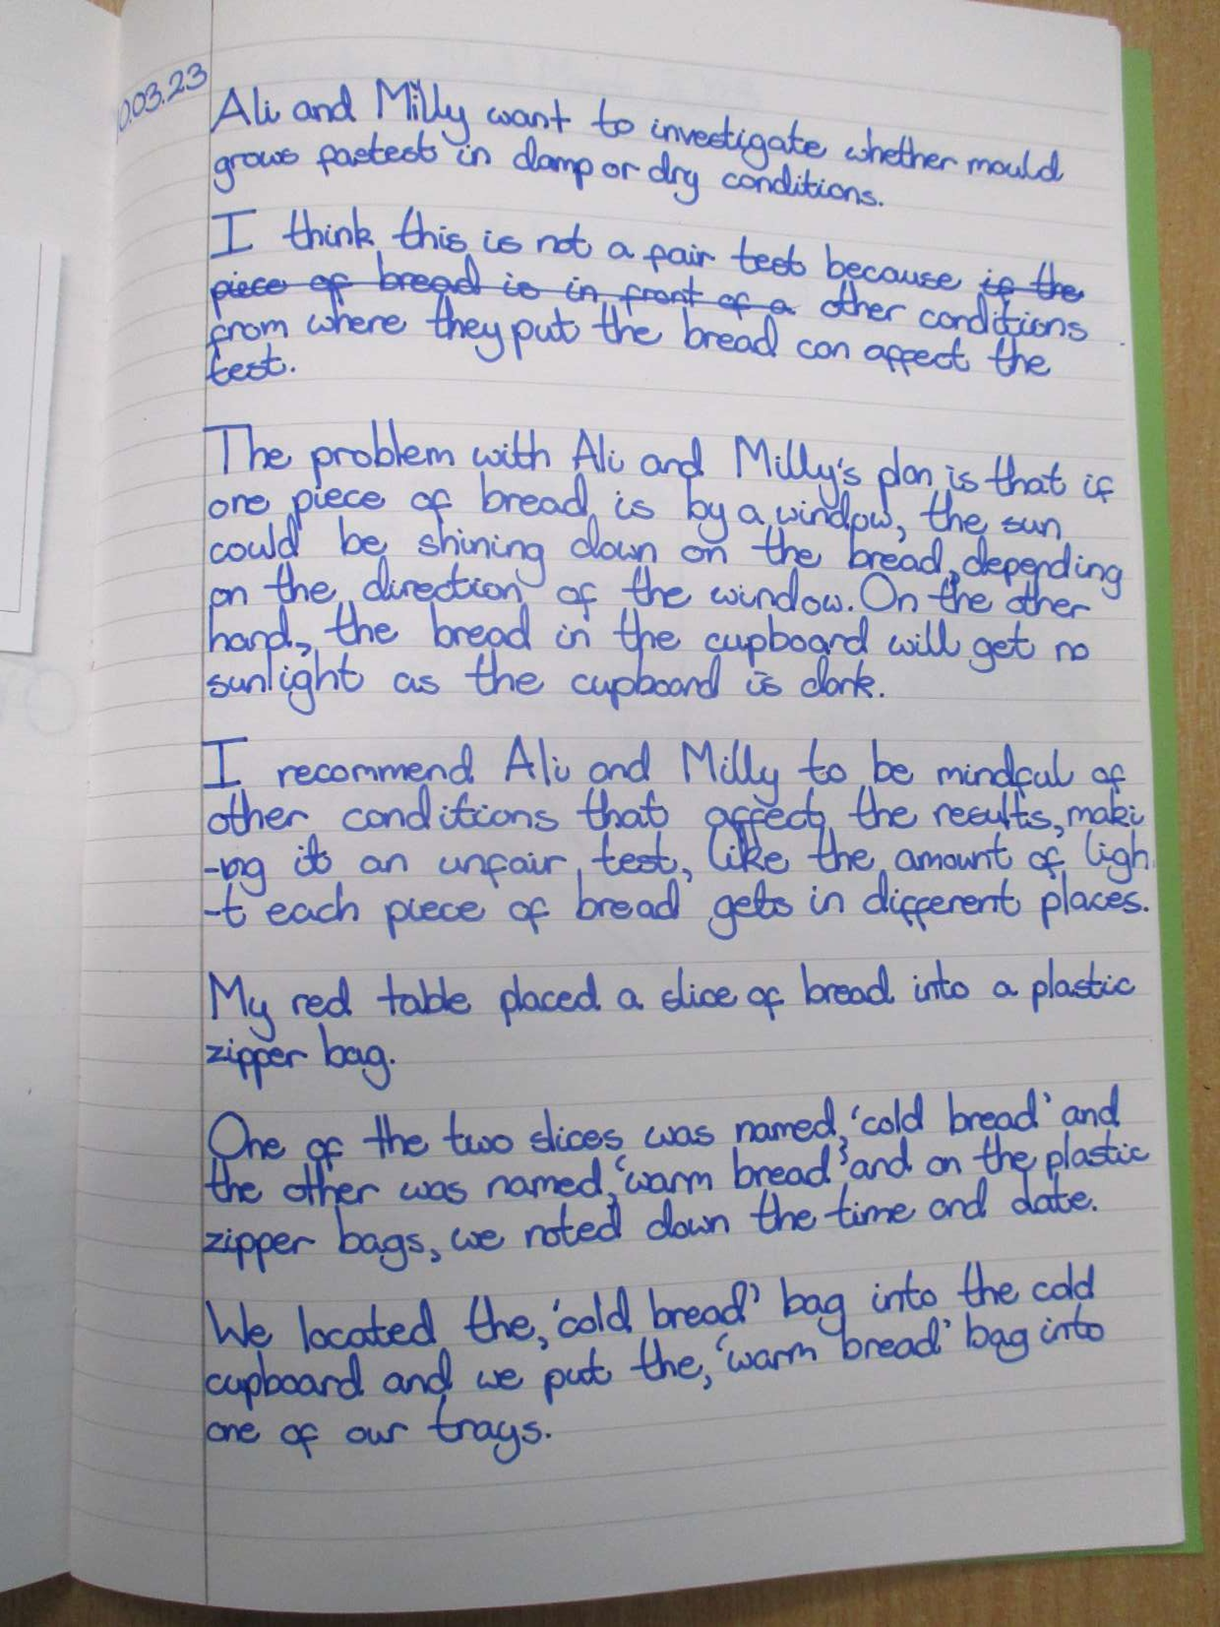 0.03.23
Ali and Milly want to investigate whether mould
grows fastest in damp or dry conditions.
I think this is not a fair test because if the
piece of bread is in front of a other conditions
from where they put the bread can affect the
test.
The problem with Ali and Milly's plan is that if
one piece of bread is by a window, the sun
could be shining down on the bread, depending
on the direction of the window. On the other
hand, the bread in the cupboard will get no
sunlight as the cupboard is dark.
I recommend Ali and Milly to be mindful of
other conditions that affect the results, maki
-ng it an unfair test, like the amount of ligh
-t each piece of bread gets in different places.
My red table placed a slice of bread into a plastic
zipper bag.
One of the two slices was named, 'cold bread' and
the other was named, 'warm bread' and on the plastic
zipper bags, we noted down the time and date.
We located the, 'cold bread' bag into the cold
cupboard and we put the, 'warm bread' bag into
one of our trays.